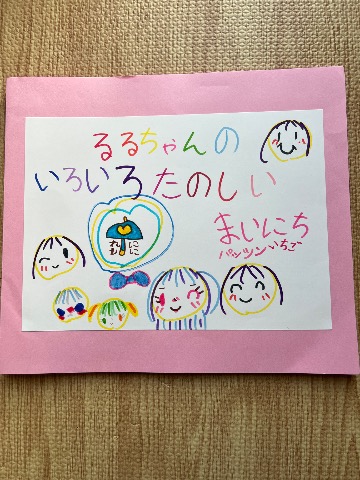 るるちゃんの
いろいろたのしい
まいにち
パッツンいちご